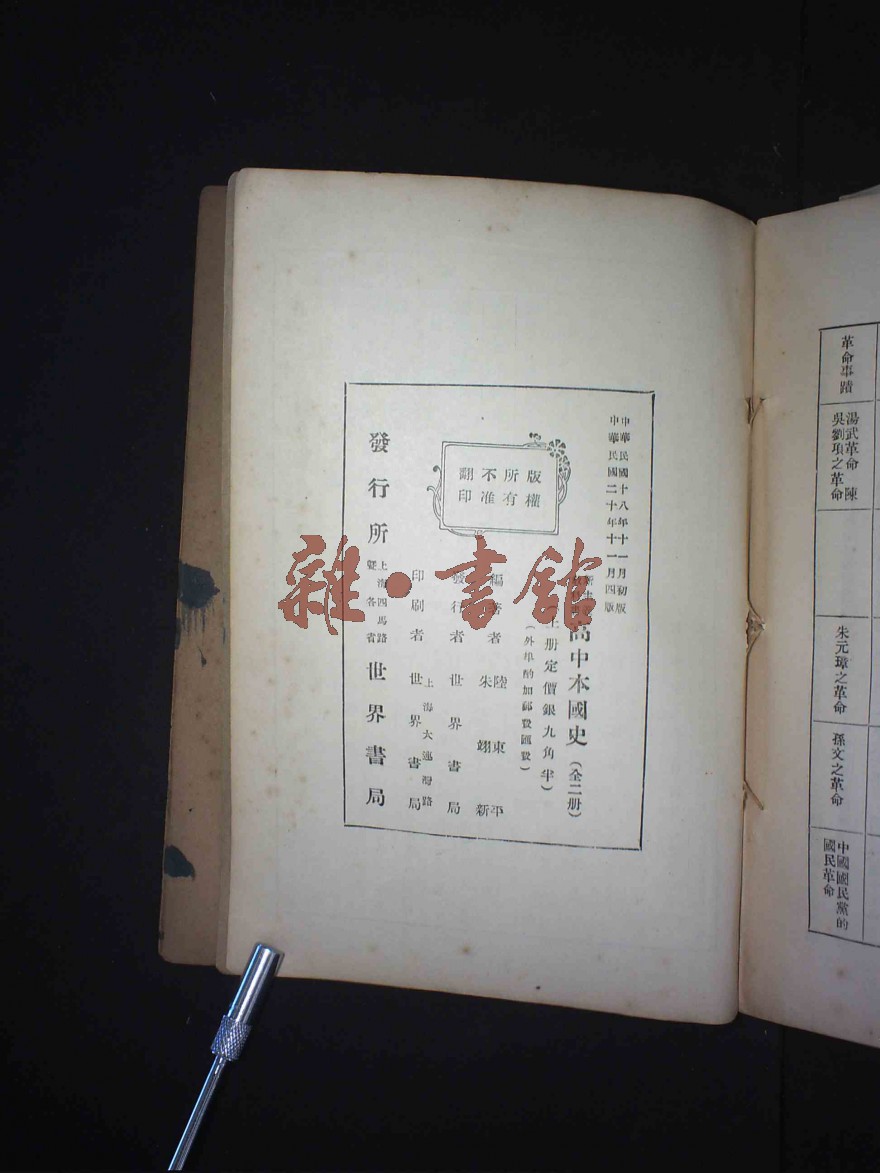 中華民國十八年十一月初版
中華民國二十年十一月四版
高中本國史(全二册)
上册定價銀九角半)
(外埠酌加郵費匯費)
編著者 陸東平
朱翊新
版權所有
不准翻印
發行者 世界書局
印刷者 世界書局
上海大連灣路
發行所 世界書局
上海四馬路
暨各省
雜·書館
革命事蹟
湯武革命 陳
吳劉項之革命
朱元璋之革命
孫文之革命
中國國民黨的
國民革命